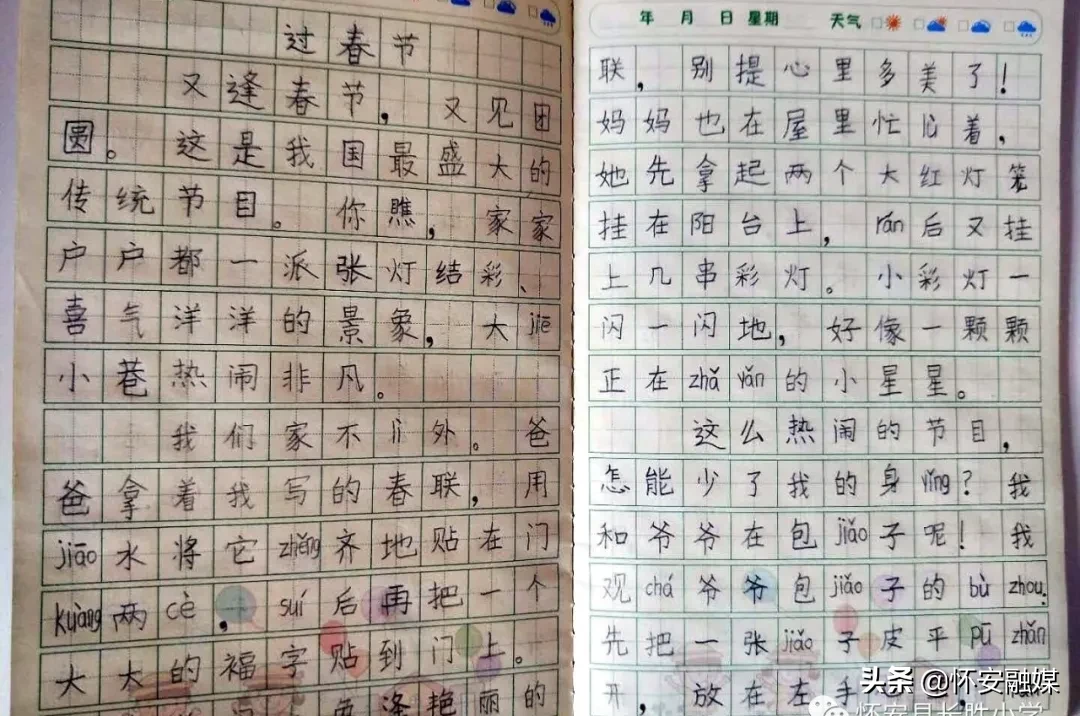 过春节
又逢春节，又见团
圆。这是我国最盛大的
传统节目。你瞧，家家
户户都一派张灯结彩、
喜气洋洋的景象，大jiē
小巷热闹非凡。
我们家不lì外。爸
爸拿着我写的春联，用
jiāo水将它zhěng齐地贴在门
kuàng两cè，suí后再把一个
大大的福字贴到门上。
逢艳丽的
年 月 日 星期 天气
联，别提心里多美了！
妈妈也在屋里忙lù着，
她先拿起两个大红灯笼
挂在阳台上，rán后又挂
上几串彩灯。小彩灯一
闪一闪地，好像一颗颗
正在zhǎ yǎn的小星星。
这么热闹的节目，
怎能少了我的身yǐng？我
和爷爷在包jiǎo子呢！我
观chá爷爷包jiǎo子的bù zhou.
先把一张jiǎo子皮平pū zhǎn
开，放在左手
头条 @怀安融媒
怀安县长胜小学